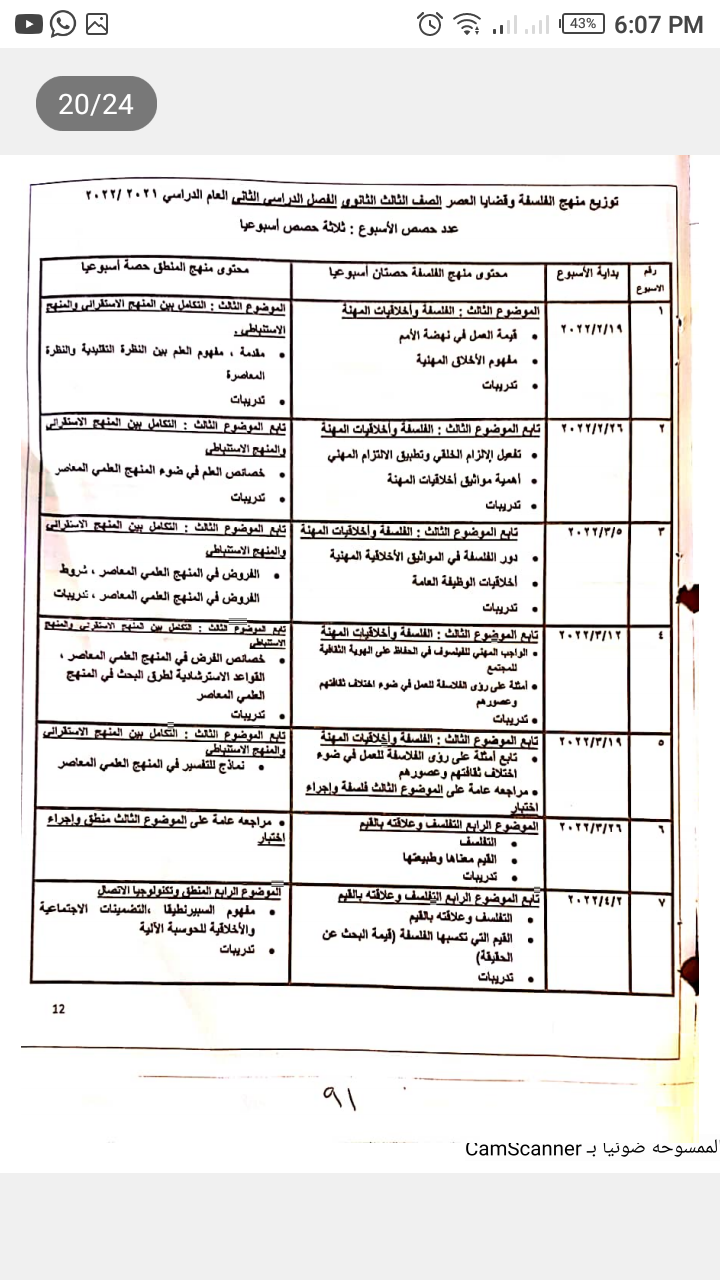 6:07 PM
43%
20/24
توزيع منهج الفلسفة وقضايا العصر الصف الثالث الثانوي الفصل الدراسي الثاني العام الدراسي ٢٠٢١ /٢٠٢٢
عدد حصص الأسبوع : ثلاثة حصص أسبوعيا
رقم الاسبوع
بداية الأسبوع
محتوى منهج الفلسفة حصتان أسبوعيا
محتوى منهج المنطق حصة أسبوعيا
١
٢٠٢٢/٢/١٩
الموضوع الثالث : الفلسفة وأخلاقيات المهنة
• قيمة العمل في نهضة الأمم
• مفهوم الأخلاق المهنية
• تدريبات
الموضوع الثالث : التكامل بين المنهج الاستقرائى والمنهج
الاستنباطي .
• مقدمة ، مفهوم العلم بين النظرة التقليدية والنظرة
المعاصرة
• تدريبات
٢
٢٠٢٢/٢/٢٦
تابع الموضوع الثالث : الفلسفة وأخلاقيات المهنة
• تفعيل الإلزام الخلقي وتطبيق الالتزام المهني
• أهمية مواثيق أخلاقيات المهنة
• تدريبات
تابع الموضوع الثالث : التكامل بين المنهج الاستقرائى
والمنهج الاستنباطي
• خصائص العلم في ضوء المنهج العلمي المعاصر
• تدريبات
٣
٢٠٢٢/٣/٥
تابع الموضوع الثالث : الفلسفة وأخلاقيات المهنة
• دور الفلسفة في المواثيق الأخلاقية المهنية
• أخلاقيات الوظيفة العامة
• تدريبات
تابع الموضوع الثالث : التكامل بين المنهج الاستقرائى
والمنهج الاستنباطي
• الفروض في المنهج العلمي المعاصر ، شروط
الفروض في المنهج العلمي المعاصر ، تدريبات
٤
٢٠٢٢/٣/١٢
تابع الموضوع الثالث : الفلسفة وأخلاقيات المهنة
• الواجب المهني للفيلسوف في الحفاظ على الهوية الثقافية
للمجتمع
• أمثلة على رؤى الفلاسفة للعمل في ضوء اختلاف ثقافتهم
وعصورهم
• تدريبات
تابع الموضوع الثالث : التكامل بين المنهج الاستقرئى والمنهج
الاستنباطي
• خصائص الفرض في المنهج العلمي المعاصر ،
القواعد الاسترشادية لطرق البحث في المنهج
العلمي المعاصر
• تدريبات
٥
٢٠٢٢/٣/١٩
تابع الموضوع الثالث : الفلسفة وأخلاقيات المهنة
• تابع أمثلة على رؤى الفلاسفة للعمل في ضوء
اختلاف ثقافتهم وعصورهم
• مراجعه عامة على الموضوع الثالث فلسفة وإجراء
اختبار
تابع الموضوع الثالث : التكامل بين المنهج الاستقرائى
والمنهج الاستنباطي
• نماذج للتفسير في المنهج العلمي المعاصر
٦
٢٠٢٢/٣/٢٦
الموضوع الرابع التفلسف وعلاقته بالقيم
• التفلسف
• القيم معناها وطبيعتها
• تدريبات
• مراجعه عامة على الموضوع الثالث منطق وإجراء
اختبار
٧
٢٠٢٢/٤/٢
تابع الموضوع الرابع التفلسف وعلاقته بالقيم
• التفلسف وعلاقته بالقيم
• القيم التي تكسبها الفلسفة (قيمة البحث عن
الحقيقة)
• تدريبات
الموضوع الرابع المنطق وتكنولوجيا الاتصال
• مفهوم السيبرنطيقا ،التضمينات الاجتماعية
والأخلاقية للحوسبة الآلية
• تدريبات
12
٩١
الممسوحة ضوئيا بـ CamScanner